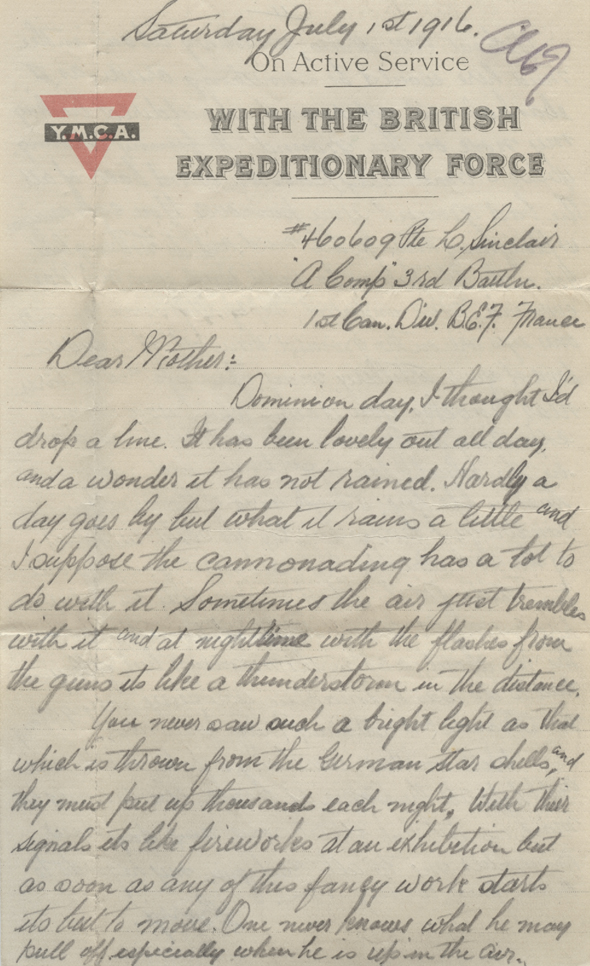 Saturday July 1st 1916.
On Active Service
WITH THE BRITISH
EXPEDITIONARY FORCE
Y.M.C.A.
#460609 Pte L. Sinclair
"A Comp" 3rd Battln.
1st Can. Div. B.E.F. France
Dear Mother:-
Dominion day, I thought I'd
drop a line. It has been lovely out all day,
and a wonder it has not rained. Hardly a
day goes by but what it rains a little and
I suppose the cannonading has a lot to
do with it. Sometimes the air just trembles
with it and at nighttime with the flashes from
the guns its like a thunderstorm in the distance.
You never saw such a bright light as that
which is thrown from the German star shells, and
they must put up thousands each night. With their
signals its like fireworks at an exhibition but
as soon as any of this fancy work starts
its but to move. One never knows what he may
pull off especially when he is up in the air..